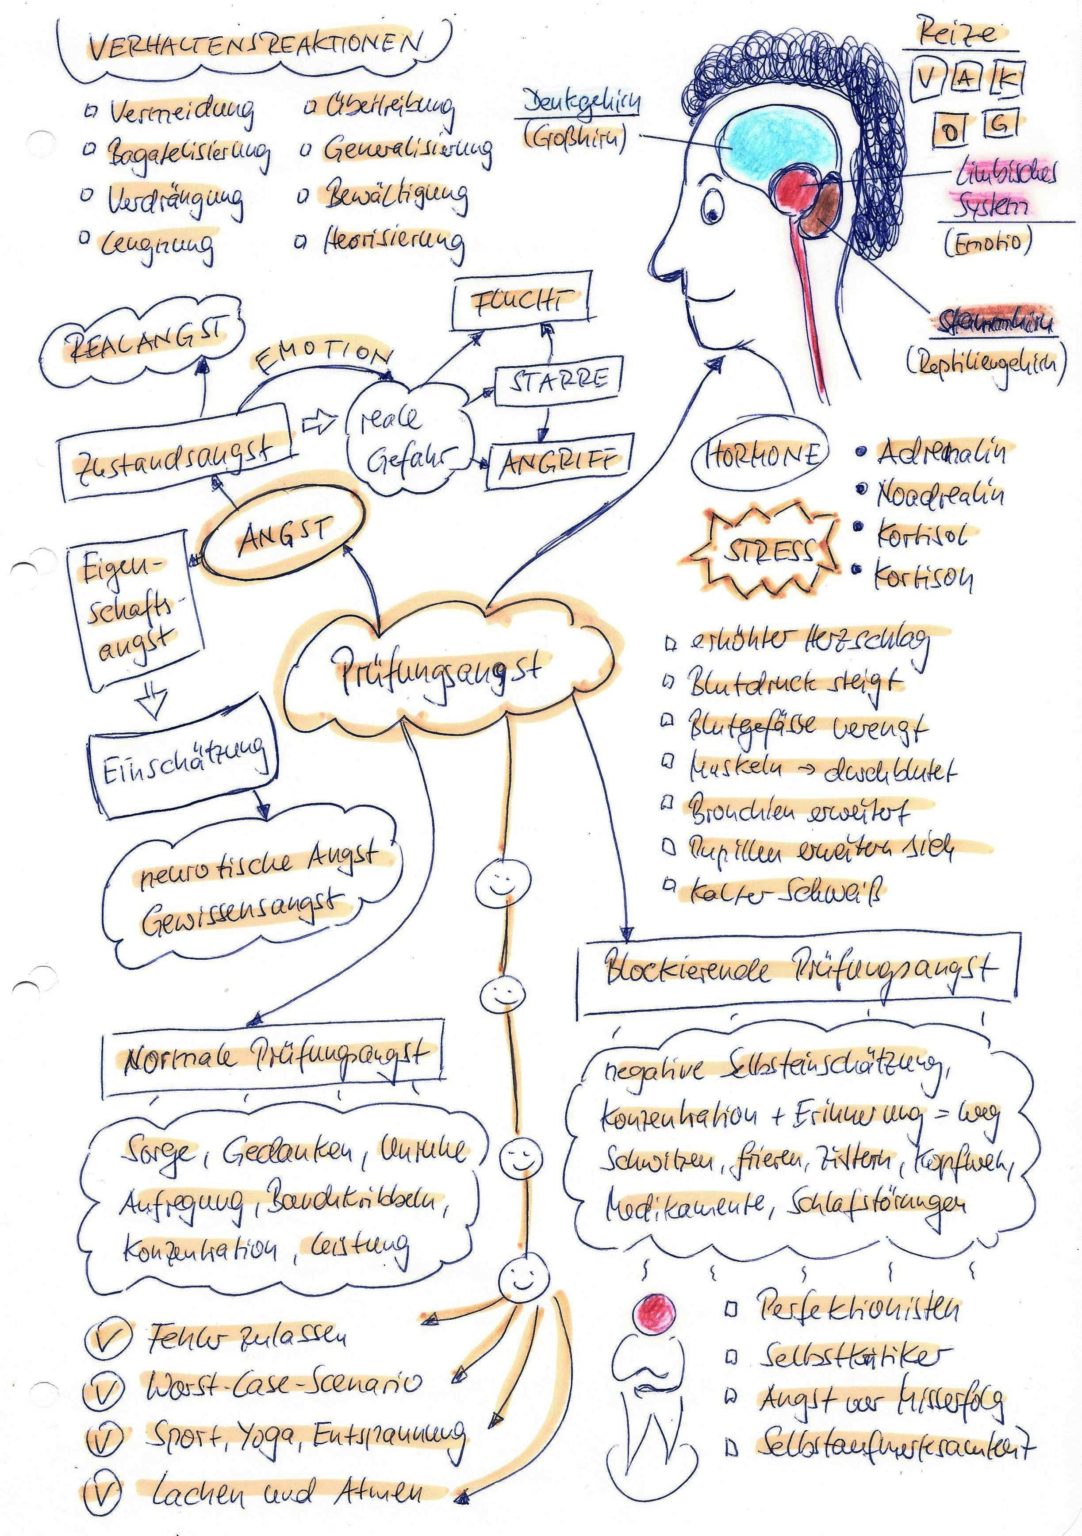 VERHALTENSREAKTIONEN
Vermeidung
Bagatelisierung
Verdrängung
Leugnung
Übertreibung
Generalisierung
Bewältigung
Heorisierung
Denkgehirn
(Großhirn)
Reize
V A K
O G
Limbisches
System
(Emotio)
Stammhirn
(Reptiliengehirn)
REALANGST
EMOTION
Zustandsangst
reale
Gefahr
FLUCHT
STARRE
ANGRIFF
ANGST
Eigen-
schafts-
angst
Einschätzung
neurotische Angst
Gewissensangst
Prüfungsangst
HORMONE
Adrenalin
Noadrealin
Kortisol
Kortison
STRESS
erhöhter Herzschlag
Blutdruck steigt
Blutgefässe verengt
Muskeln → durchblutet
Bronchien erweitert
Pupillen erweitern sich
Kalter Schweiß
Normale Prüfungsangst
Sorge, Gedanken, Unruhe
Aufregung, Bauchkribbeln,
Konzentration, Leistung
Blockierende Prüfungsangst
negative Selbsteinschätzung,
Konzentration + Erinnerung = weg
Schwitzen, frieren, Zittern, Kopfweh,
Medikamente, Schlafstörungen
Fehler zulassen
Worst-Case-Scenario
Sport, Yoga, Entspannung
Lachen und Atmen
Perfektionisten
Selbstkritiker
Angst vor Misserfolg
Selbstaufmerksamkeit